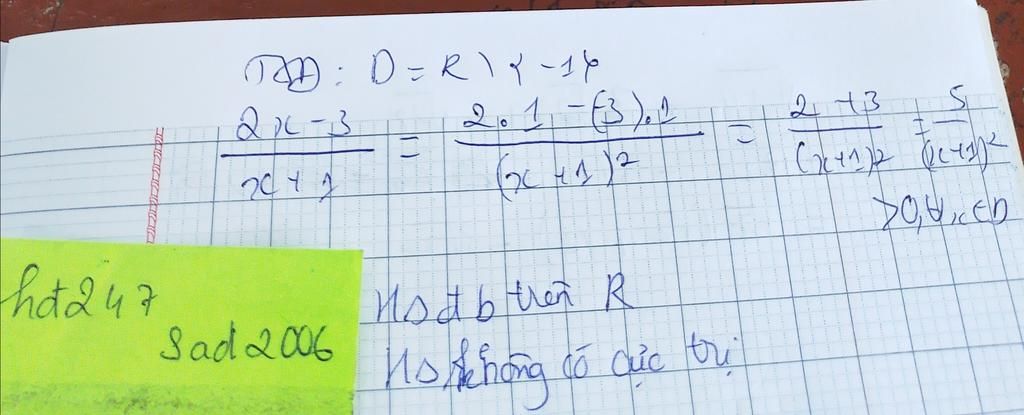 TXĐ: D = R \ {-1}
2x-3/x+1 = 2.1-(-3).1/(x+1)² = 2+3/(x+1)² = 5/(x+1)²
>0, ∀x∈D
hđt247
Sad2006
Hs đb trên R
Hs không có cực trị